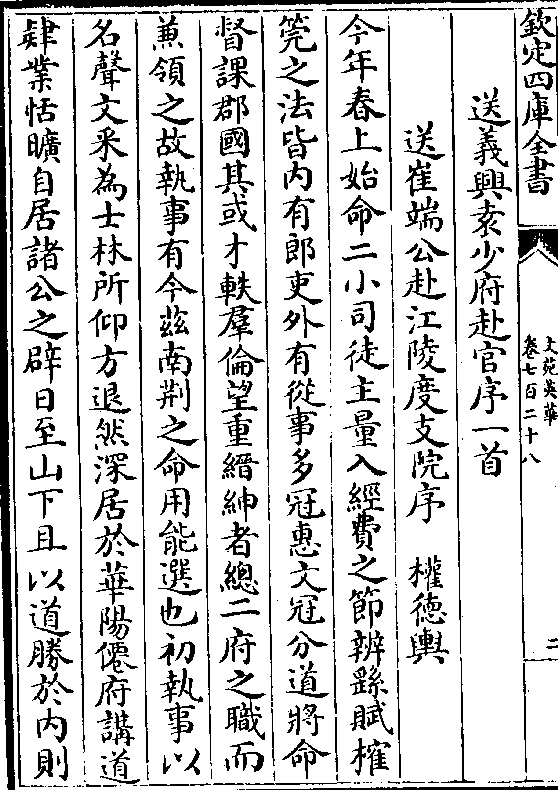 欽定四庫全書
文苑英華
卷七百二十八
二
送義興袁少府赴官序一首
送崔端公赴江陵度支院序　權德輿
今年春上始命二小司徒主量入經費之節辨繇賦榷
筦之法皆内有郎吏外有從事多冠惠文冠分道將命
督課郡國其或才軼羣倫望重縉紳者總二府之職而
兼領之故執事有今兹南荆之命用能選也初執事以
名聲文采為士林所仰方退然深居於華陽僊府講道
肄業恬曠自居諸公之辟日至山下且以道勝於内則